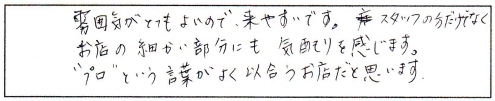 雰囲気がとてもよいので、来やすいです。スタッフの方だけでなく
お店の細かい部分にも気配りを感じます。
"プロ"という言葉がよく似合うお店だと思います.